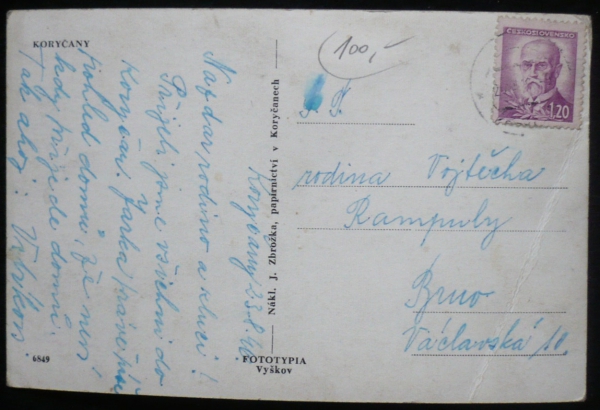 KORYČANY
100,-
ČESKOSLOVENSKO
1.20
Koryčany 23.8.46.
Nazdar rodino a kluci!
Přijeli jsme všichni do
Koryčan. Jarka právě píše
pohled domů, že neví
kdy přijede domů.
Tak ahoj:
Nákl. J. Zbrožka, papírnictví v Koryčanech
T.
rodina Vojtěcha
Rampuly
Brno
Václavská 10.
6849
FOTOTYPIA
Vyškov